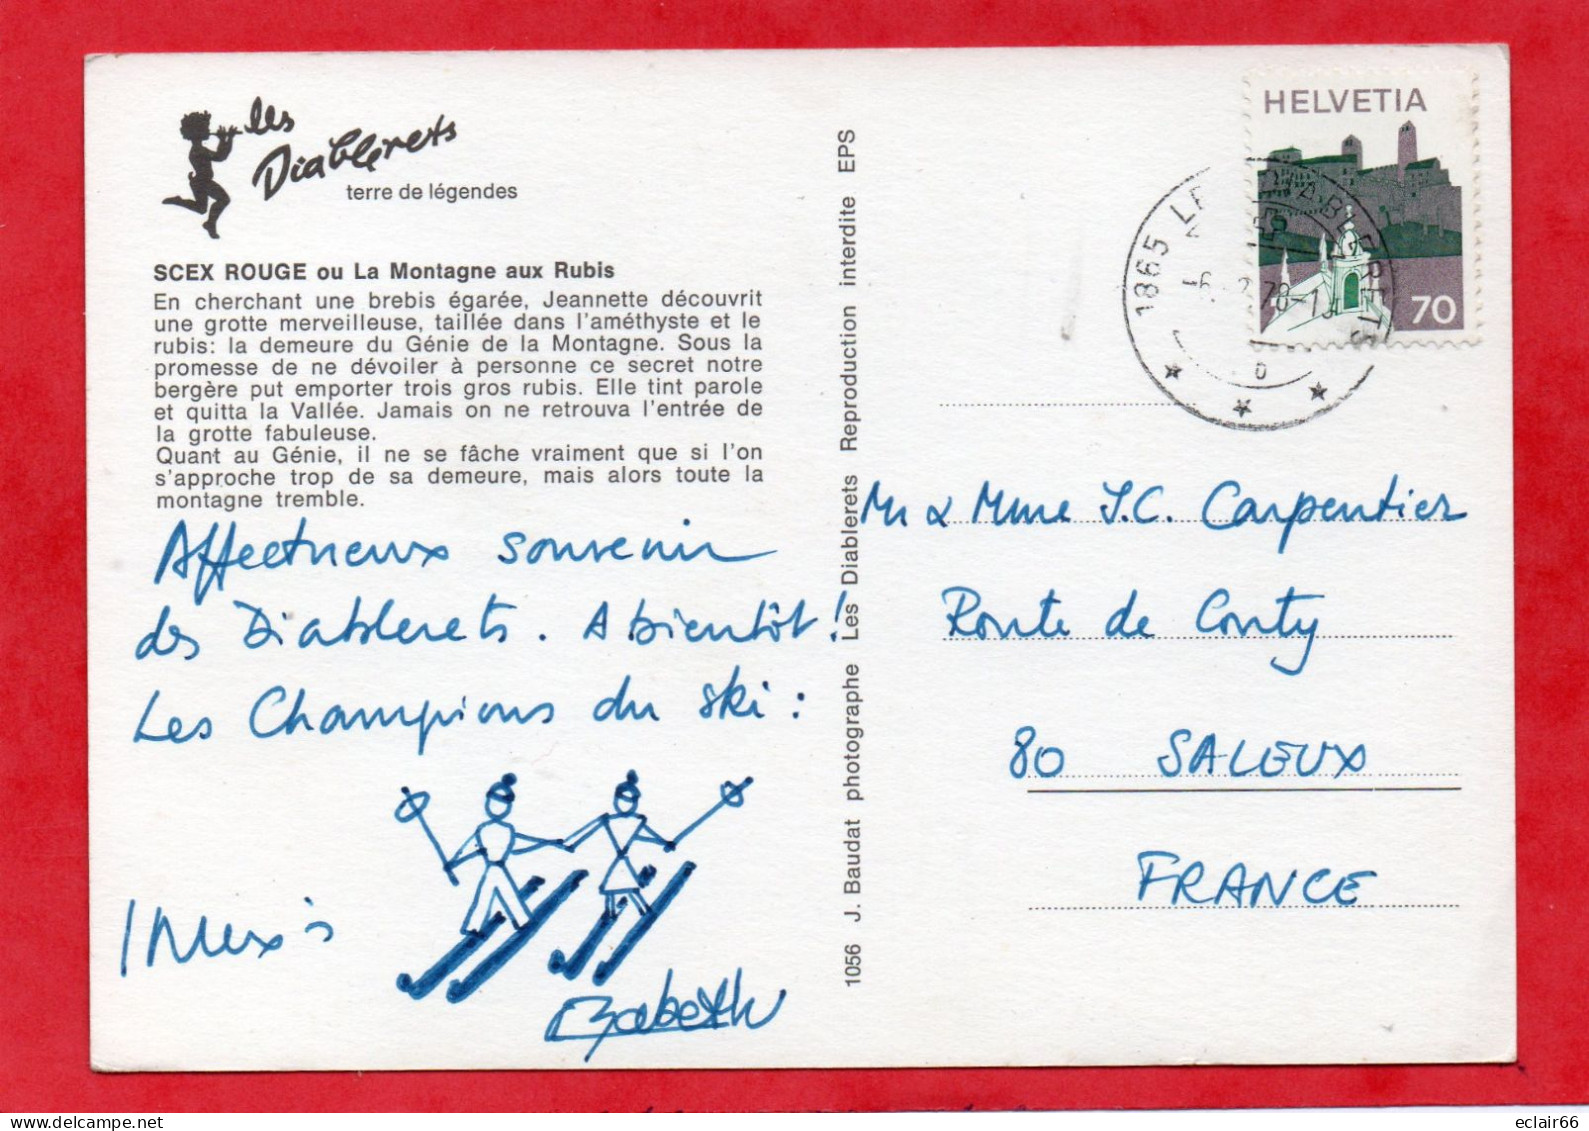 les
Diablerets
terre de légendes
SCEX ROUGE ou La Montagne aux Rubis
En cherchant une brebis égarée, Jeannette découvrit
une grotte merveilleuse, taillée dans l'améthyste et le
rubis: la demeure du Génie de la Montagne. Sous la
promesse de ne dévoiler à personne ce secret notre
bergère put emporter trois gros rubis. Elle tint parole
et quitta la Vallée. Jamais on ne retrouva l'entrée de
la grotte fabuleuse.
Quant au Génie, il ne se fâche vraiment que si l'on
s'approche trop de sa demeure, mais alors toute la
montagne tremble.
Affectueux souvenir
des Diablerets. A bientôt!
Les Champions du ski:
Babeth
1056 J. Baudat photographe Les Diablerets Reproduction interdite EPS
HELVETIA
70
1865 LES DIABLERETS
Mr & Mme J.C. Carpentier
Route de Conty
80 SALEUX
FRANCE
delcampe.net
eclair66